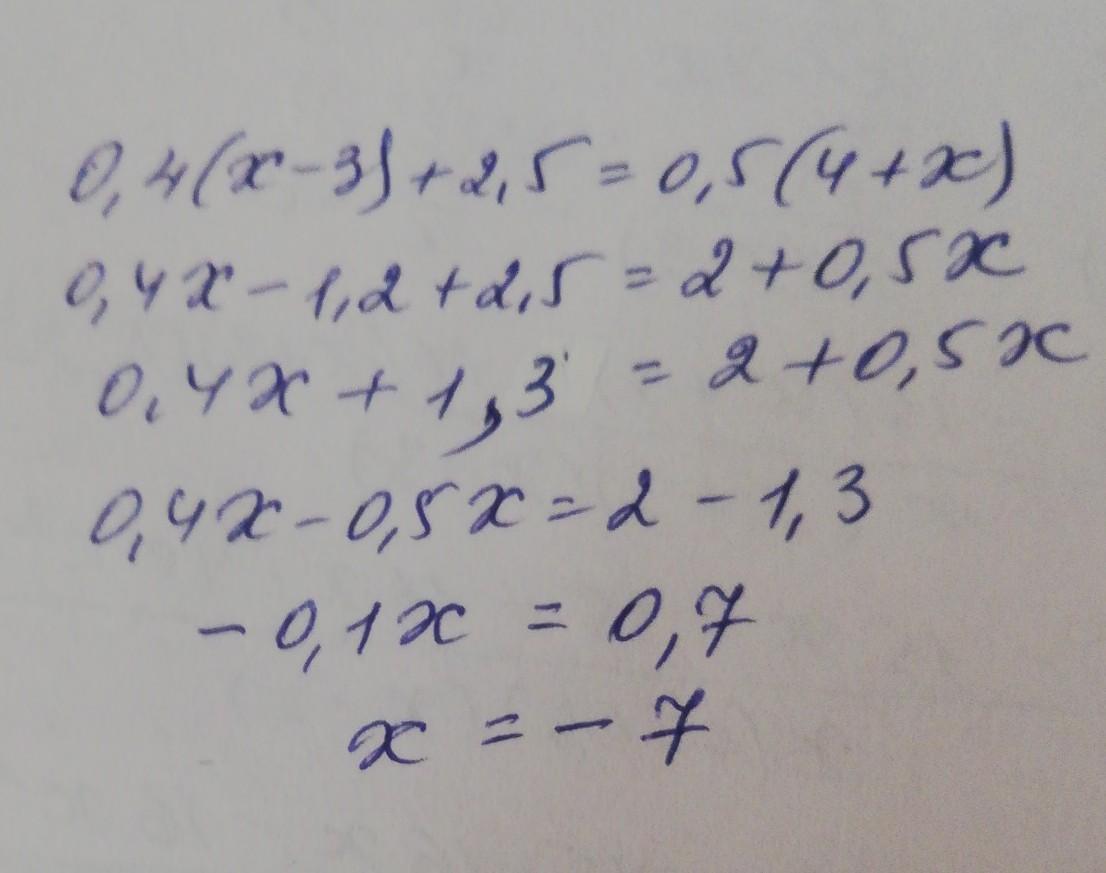 0,4(x-3)+2,5=0,5(4+x)
0,4x-1,2+2,5=2+0,5x
0,4x+1,3=2+0,5x
0,4x-0,5x=2-1,3
-0,1x=0,7
x=-7